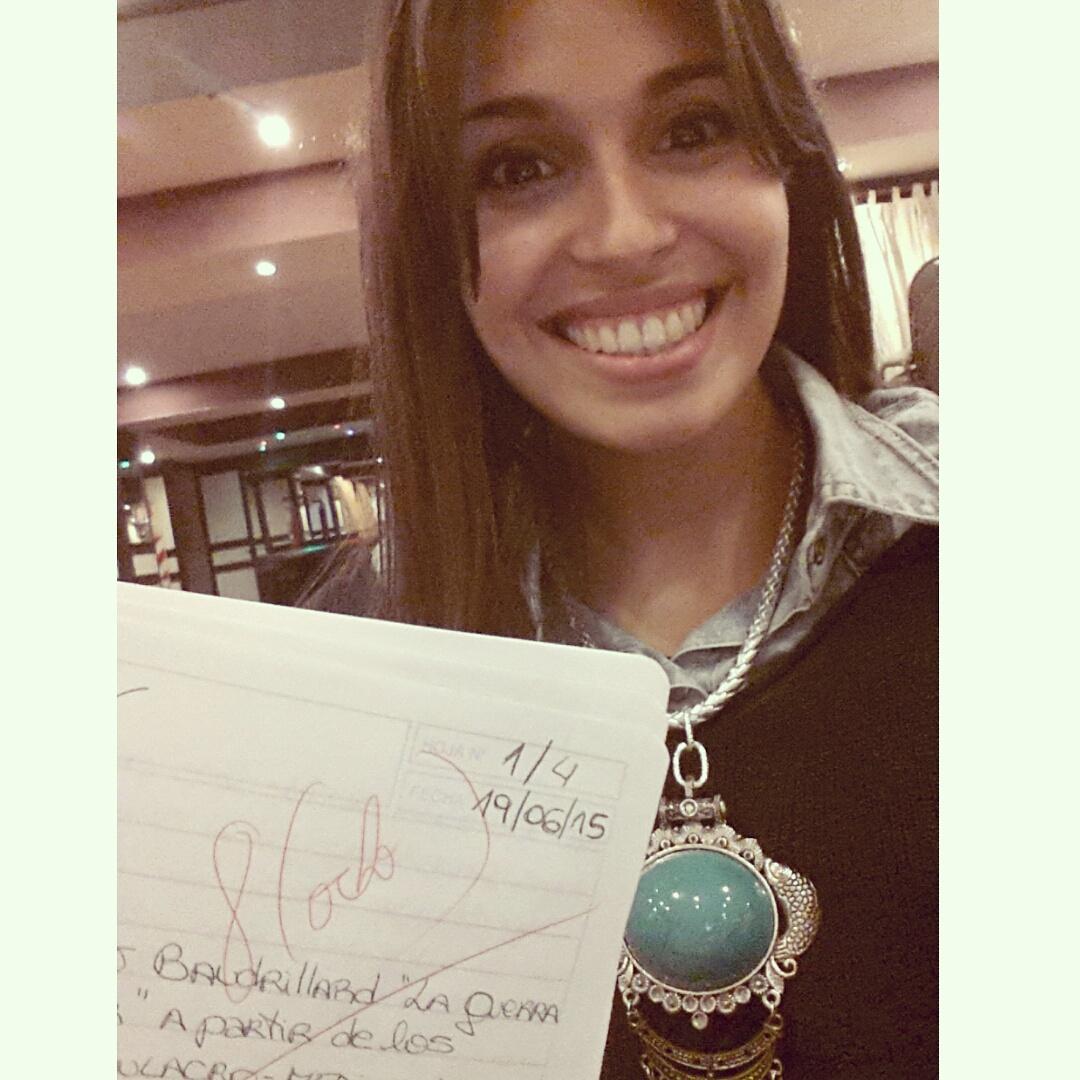 HOJA Nº 1/4
FECHA 19/06/15
8 (ocho)
Baudrillard "La guerra
" A partir de los